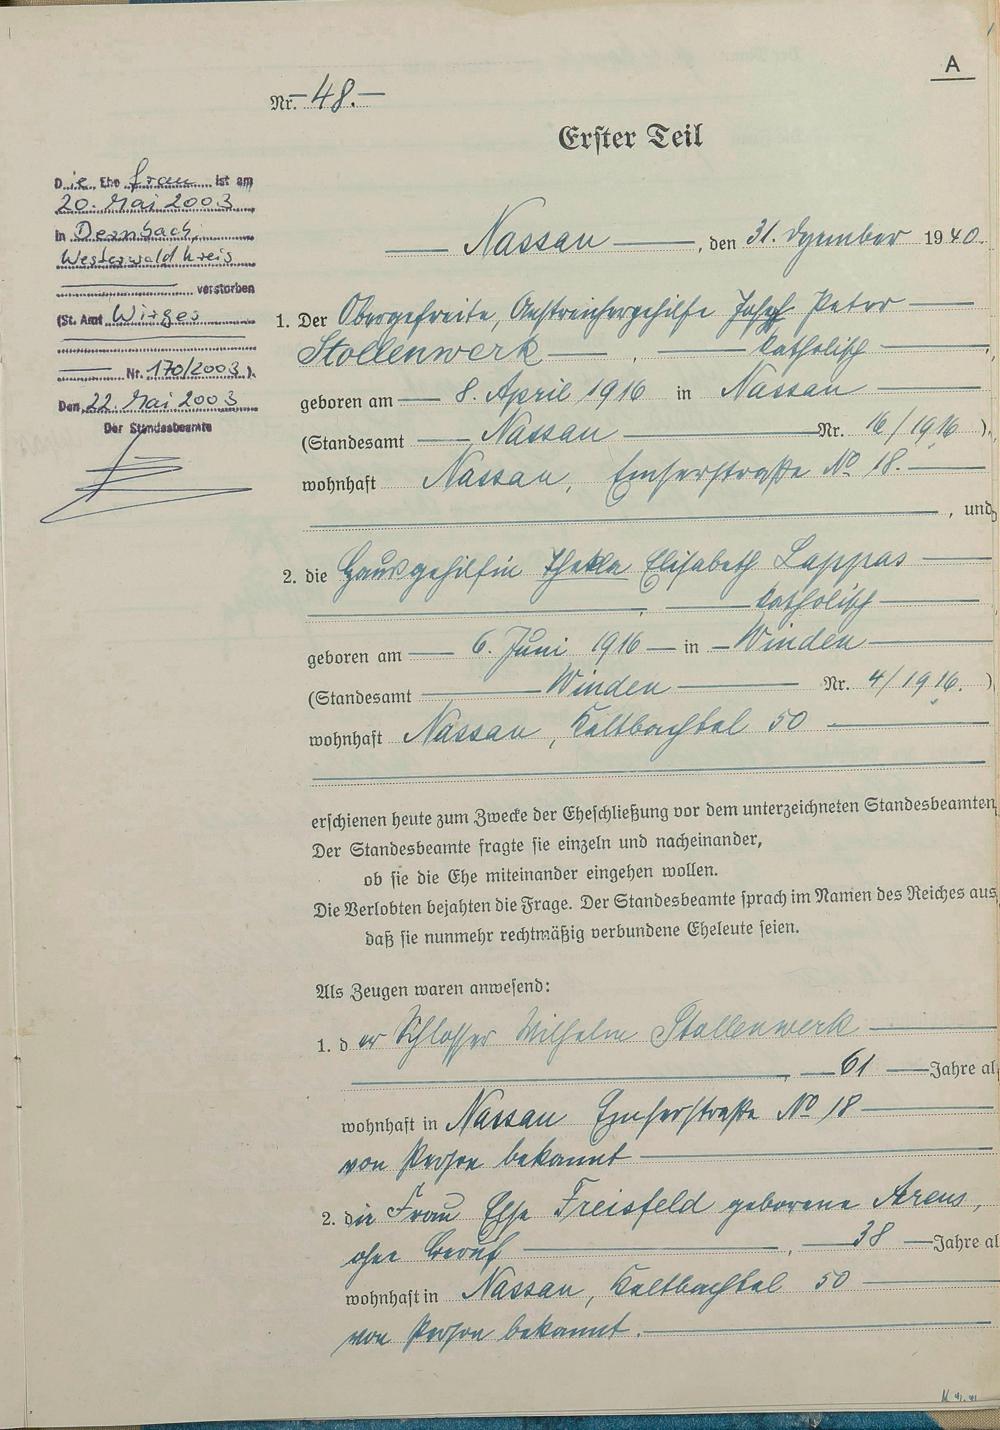 A
Nr. 48.
Erster Teil
Nassau, den 31. Dezember 1940.
Die Ehefrau ist am
20. Mai 2003
in Dernbach,
Westerwaldkreis
verstorben
(St. Amt Wirges
Nr. 170/2003).
Den 22. Mai 2003
Der Standesbeamte
1. Der Obergefreite, Anstreichergehilfe Joseph Peter
Stollenwerk, katholisch,
geboren am 8. April 1916 in Nassau
(Standesamt Nassau Nr. 16/1916),
wohnhaft Nassau, Emserstraße No 18.
, und
2. die Hausgehilfin Thekla Elisabeth Lappas
, katholisch
geboren am 6. Juni 1916 in Winden
(Standesamt Winden Nr. 4/1916.)
wohnhaft Nassau, Kaltbachtal 50
erschienen heute zum Zwecke der Eheschließung vor dem unterzeichneten Standesbeamten,
Der Standesbeamte fragte sie einzeln und nacheinander,
ob sie die Ehe miteinander eingehen wollen.
Die Verlobten bejahten die Frage. Der Standesbeamte sprach im Namen des Reiches aus,
daß sie nunmehr rechtmäßig verbundene Eheleute seien.
Als Zeugen waren anwesend:
1. der Schlosser Wilhelm Stollenwerk
, 61 Jahre al
wohnhaft in Nassau Emserstraße No 18
von Person bekannt
2. die Frau Else Freisfeld geborene Arens,
ohne Beruf, 38 Jahre al
wohnhaft in Nassau, Kaltbachtal 50
von Person bekannt.